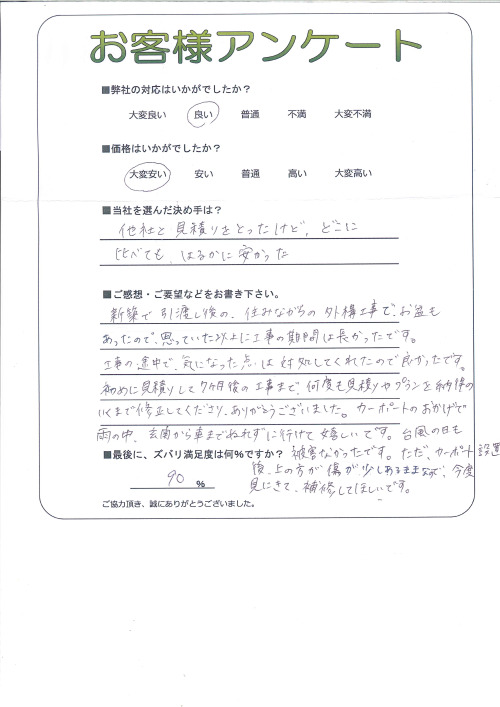 お客様アンケート
■弊社の対応はいかがでしたか?
大変良い 良い 普通 不満 大変不満
■価格はいかがでしたか?
大変安い 安い 普通 高い 大変高い
■当社を選んだ決め手は?
他社と見積りをとったけど、どこに
比べても、はるかに安かった
■ご感想・ご要望などをお書き下さい。
新築で引渡し後の、住みながらの外構工事で、お盆も
あったので、思っていた以上に工事の期間は長かったです。
工事の途中で、気になった点は対処してくれたので良かったです。
初めに見積りして7ヶ月後の工事まで、何度も見積りやプランを納得の
いくまで修正してくださり、ありがとうございました。カーポートのおかげで
雨の中、玄関から車までぬれずに行けて嬉しいです。台風の日も
■最後に、ズバリ満足度は何%ですか? 被害なかったです。ただ、カーポート設置
90 % 後、上の方が傷が少しあるままなので、今度
見にきて、補修してほしいです。
ご協力頂き、誠にありがとうございました。